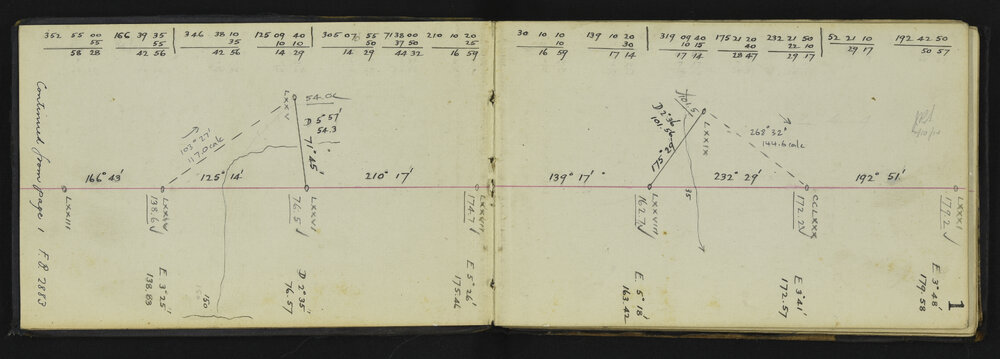 352 55 00
55
58 28
166 39 35
55
42 56
346 38 10
35
42 56
125 09 40
10 10
14 29
305 07 55
50
14 29
71 38 00
37 50
44 32
210 10 20
25
16 59
30 10 10
10
16 59
139 10 20
30
17 14
319 09 40
10 15
17 14
175 21 20
40
28 47
232 21 50
22 10
29 17
52 21 10
29 17
192 42 50
50 57
Continued from page 1 F.B 7883
LXXIII
166° 43'
LXXIV
138.6
E 3° 25'
138.83
103° 27'
117.0 calc
125° 14'
150
LXXV
54.06
D 5° 57'
54.3
71° 45'
LXXVI
76.5
D 2° 35'
76.57
210° 17'
LXXVII
174.7
E 5° 26'
175.46
139° 17'
LXXVIII
162.7
E 5° 18'
163.42
D 2° 36'
101.56
175° 29'
101.5
LXXIX
35
232° 29'
268° 32'
144.6 calc
CCLXXX
172.2
E 3° 41'
172.57
192° 51'
LXXXI
179.2
E 3° 48'
179.58
1